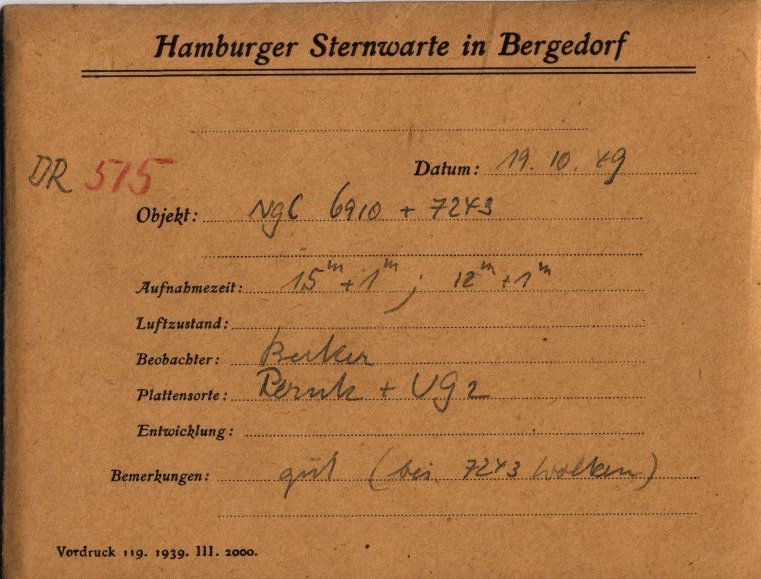 Hamburger Sternwarte in Bergedorf
DR 515
Datum: 19. 10. 49
Objekt: NGC 6910 + 7243
Aufnahmezeit: 15m + 1m ; 12m + 1m
Luftzustand:
Beobachter: Becker
Plattensorte: + UG2
Entwicklung:
Bemerkungen: gut (bei 7243 Wolken)
Vordruck 119. 1939. III. 2000.